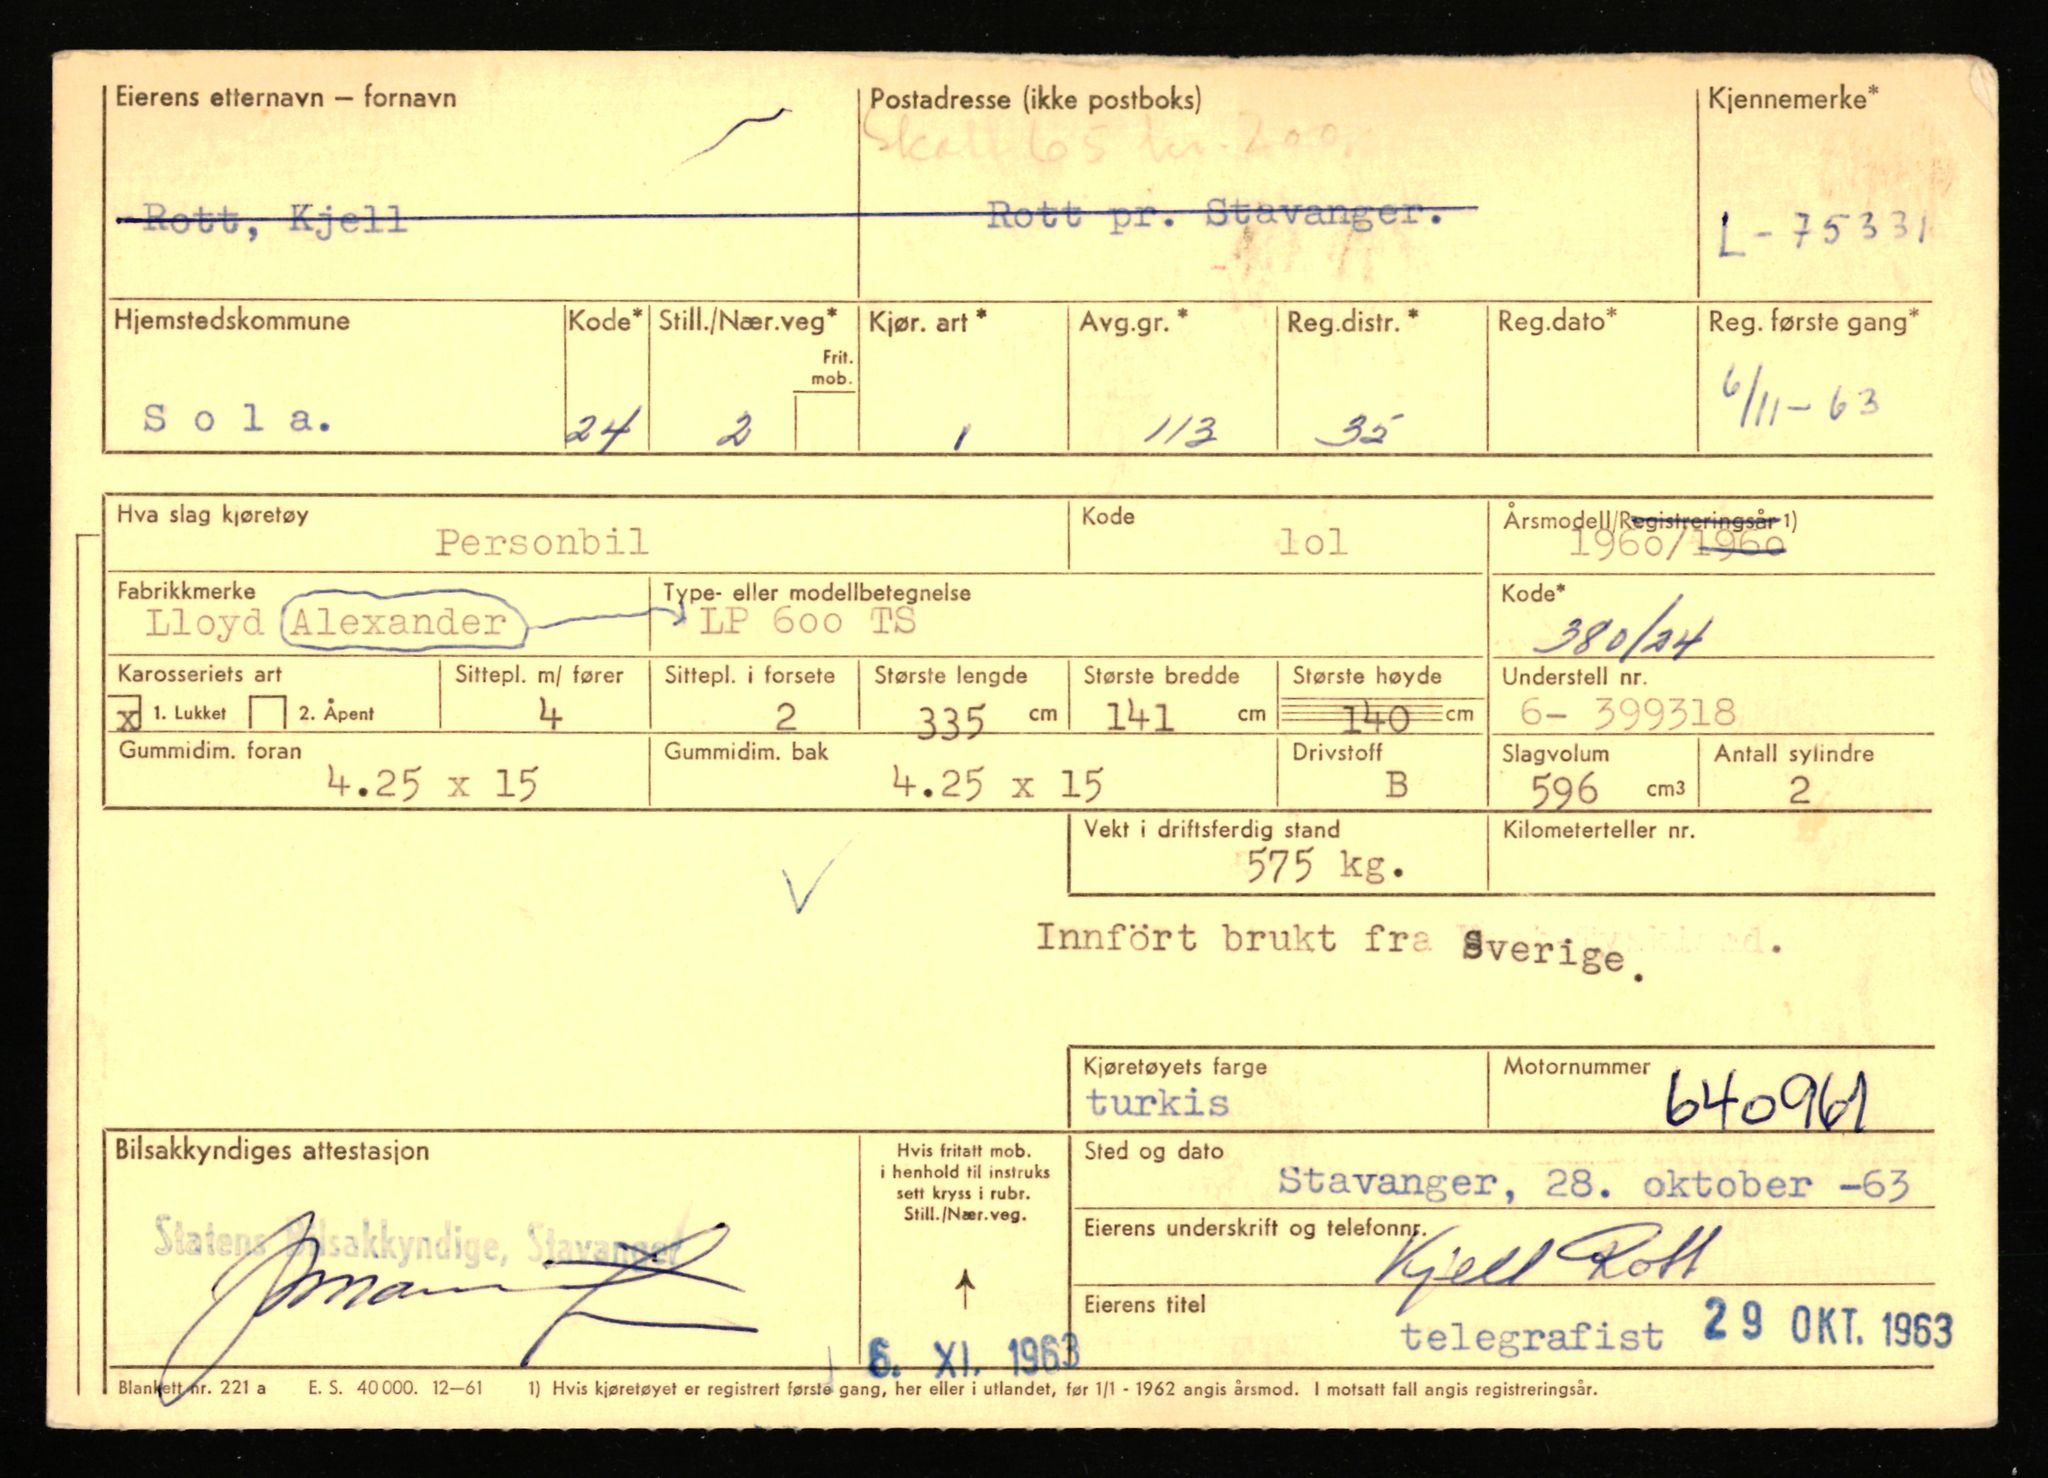 Eierens etternavn – fornavn
Postadresse (ikke postboks)
Kjennemerke*
Skatt 65 kr. 200.
Rott, Kjell
Rott pr. Stavanger.
L - 75331
Hjemstedskommune
Kode*
Still./Nær.veg*
Frit.
mob.
Kjør. art *
Avg.gr. *
Reg.distr. *
Reg.dato*
Reg. første gang*
S o l a.
24
2
1
113
35
6/11 - 63
Hva slag kjøretøy
Personbil
Kode
lol
Årsmodell/Registreringsår 1)
1960/1960
Fabrikkmerke
Lloyd Alexander
Type- eller modellbetegnelse
LP 600 TS
Kode*
380/24
Karosseriets art
x 1. Lukket
2. Åpent
Sittepl. m/ fører
4
Sittepl. i forsete
2
Største lengde
335 cm
Største bredde
141 cm
Største høyde
140 cm
Understell nr.
6- 399318
Gummidim. foran
4.25 x 15
Gummidim. bak
4.25 x 15
Drivstoff
B
Slagvolum
596 cm3
Antall sylindre
2
Vekt i driftsferdig stand
575 kg.
Kilometerteller nr.
Innfört brukt fra Sverige.
Kjøretøyets farge
turkis
Motornummer
640961
Bilsakkyndiges attestasjon
Statens Bilsakkyndige, Stavanger
Hvis fritatt mob.
i henhold til instruks
sett kryss i rubr.
Still./Nær.veg.
↑
6. XI. 1963
Sted og dato
Stavanger, 28. oktober -63
Eierens underskrift og telefonnr.
Kjell Rott
Eierens titel
telegrafist
29 OKT. 1963
Blankett nr. 221 a E. S. 40 000. 12–61 1) Hvis kjøretøyet er registrert første gang, her eller i utlandet, før 1/1 - 1962 angis årsmod. I motsatt fall angis registreringsår.